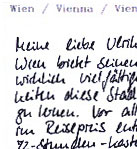 Wien / Vienna / Vien
Meine liebe Ulrik
Wien bietet seinen
wirklich vielfältige
keiten diese Stad
zu lernen. Vor all
im Reisepreis ent
72-Stunden-Karte